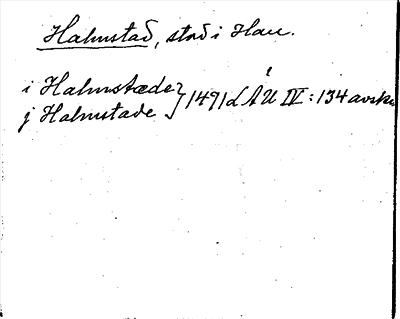 Halmstad, stad i Hall.
i Halmstæde } 1491 LÅU IV : 134 avskr
j Halmstade